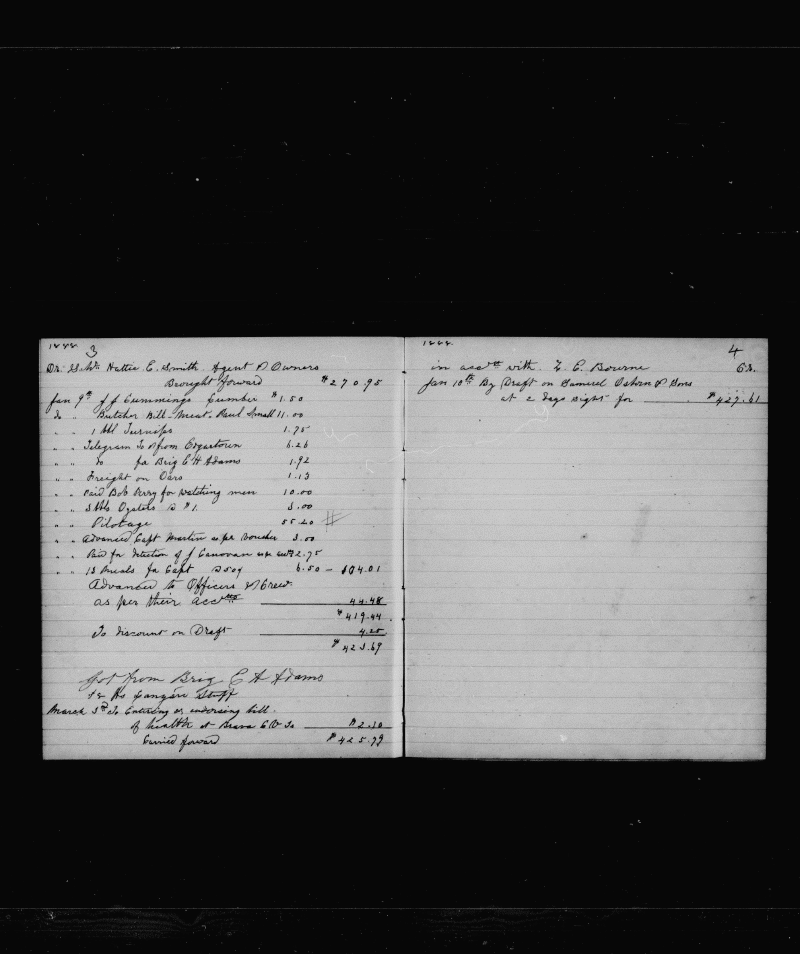 1888. 3
Dr. Sch. Hattie E. Smith Agent & Owners
Brought forward $270.95
Jan 9th J J Cummings Lumber $1.50
do " Butcher Bill. Meat. Paul Small 11.00
" " 1 bbl Turnips 1.75
" " Telegram To & from Edgartown 6.26
" " do for Brig E H Adams 1.92
" " Freight on Oars 1.13
" " Paid Bob Perry for watching men 10.00
" " 3 bbls Oysters @ $1. 3.00
" " Pilotage 55.20
" " Advanced Capt Martin as per voucher 3.00
" " Paid for detection of J Canovan as per acct 2.75
" " 13 Meals for Capt @ 50¢ 6.50 — 104.01
Advanced to Officers & Crew
as per their accts 44.48
$419.44
To discount on Draft 4.25
$423.69
Got from Brig E H Adams
Stuff
March 3rd To Entering or endorsing bill
of health at Brava C V Is $2.10
Carried forward $425.79
1888. 4
in acct with E. Bourne Cr.
Jan 10th By Draft on Samuel Osborn & Sons
at 2 days sight for $427.61